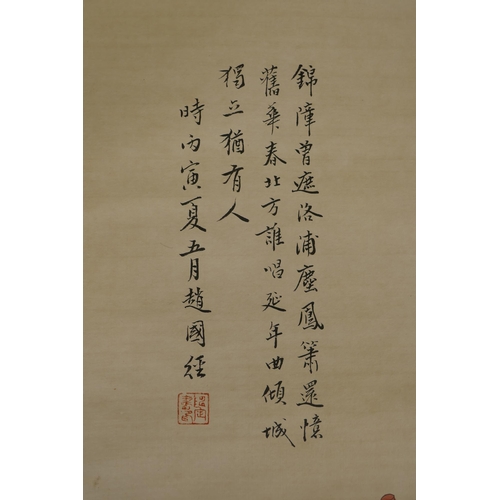 錦障曾遮洛浦塵鳳簫還憶
舊華春北方誰唱延年曲傾城
獨立猶有人
時丙寅夏五月趙國經